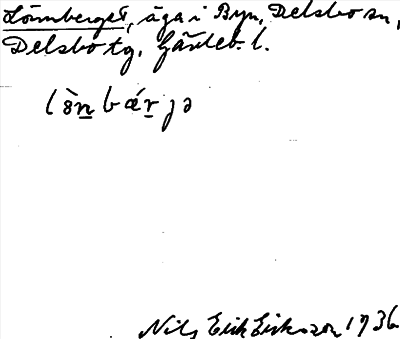 Lönnberget, äga i Byn, Delsbo sn,
Delsbo tg. Gävleb. l.
lònbǽrjə
Nils Erik Eriksson 1936